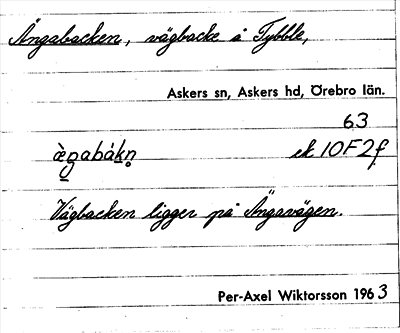 Ängabacken, vägbacke å Tybble,
Askers sn, Askers hd, Örebro län.
63
ek 10F2f
Vägbacken ligger på Ängavägen.
Per-Axel Wiktorsson 1963